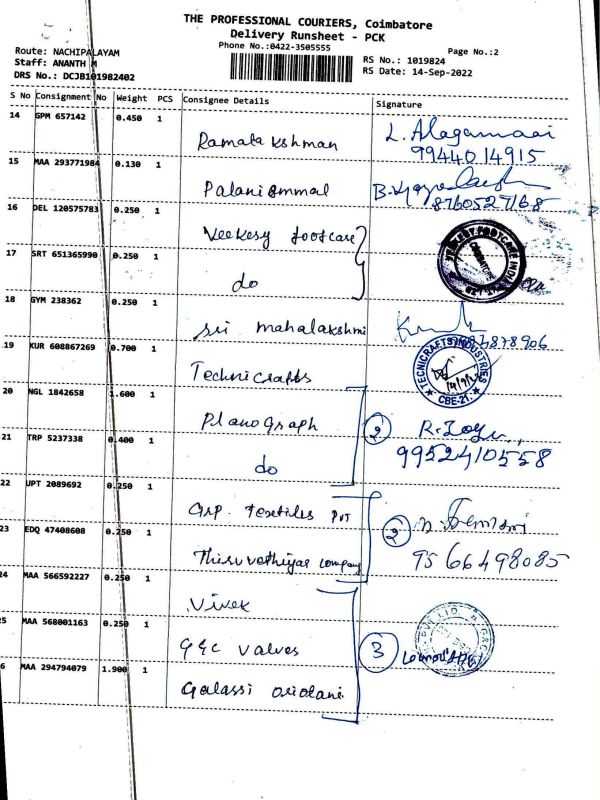 THE PROFESSIONAL COURIERS, Coimbatore
Delivery Runsheet - PCK
Phone No.:0422-3505555
Page No.:2
Route: NACHIPALAYAM
Staff: ANANTH M
RS No.: 1019824
DRS No.: DCJB101982402
RS Date: 14-Sep-2022
S No Consignment No Weight PCS Consignee Details Signature
14 GPM 657142 0.450 1
Ramalakshman L. Alagammai
9944014915
15 MAA 293771984 0.130 1
Palaniammal B.
8760527168
16 DEL 120575783 0.250 1
Veekesy footcare
17 SRT 651365990 0.250 1
do
18 GYM 238362 0.250 1
sri mahalakshmi
19 KUR 608867269 0.700 1
Technicrafts
TECNICRAFTS INDUSTRIES
14/9/22
CBE-21
20 NGL 1842658 1.600 1
Planograph 2 R.
21 TRP 5237338 0.400 1
do 9952410558
22 UPT 2089692 0.250 1
Grp. textiles PVT 2
23 EDQ 47408608 0.250 1
Thiruvethiyar company 9566498085
24 MAA 566592227 0.250 1
Vivek
25 MAA 568001163 0.250 1
G&C valves 3
26 MAA 294794079 1.900 1
Galassi